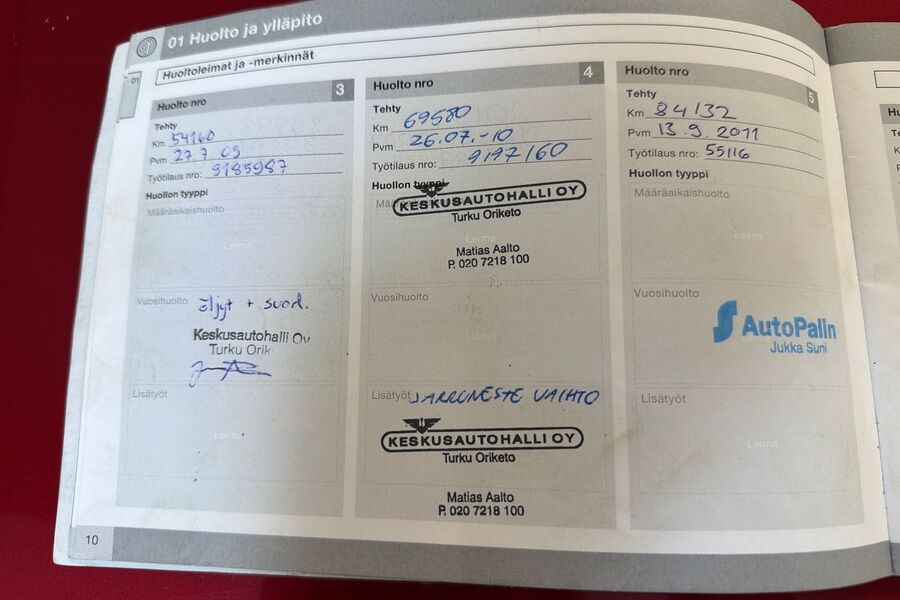 01 Huolto ja ylläpito
01
Huoltoleimat ja -merkinnät
Huolto nro 3
Tehty
Km 54160
Pvm 27.7 09
Työtilaus nro: 9185987
Huollon tyyppi
Määräaikaishuolto
Leima
Vuosihuolto öljyt + suod.
Keskusautohalli Oy
Turku Orik
Lisätyöt
Leima
Huolto nro 4
Tehty
Km 69580
Pvm 26.07.-10
Työtilaus nro: 9197160
Huollon tyyppi
KESKUSAUTOHALLI OY
Turku Oriketo
Leima
Matias Aalto
P. 020 7218 100
Vuosihuolto
Leima
Lisätyöt JARRUNESTE VAIHTO
KESKUSAUTOHALLI OY
Turku Oriketo
Matias Aalto
P. 020 7218 100
Huolto nro 5
Tehty
Km 84132
Pvm 13.9.2011
Työtilaus nro: 55116
Huollon tyyppi
Määräaikaishuolto
Leima
Vuosihuolto
AutoPalin
Jukka Suni
Lisätyöt
Leima
10